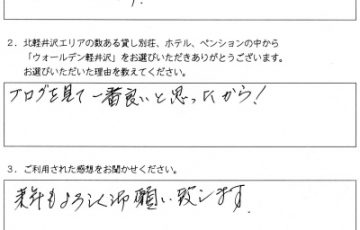 2．北軽井沢エリアの数ある貸し別荘、ホテル、ペンションの中から
「ウォールデン軽井沢」をお選びいただきありがとうございます。
お選びいただいた理由を教えてください。
ブログを見て一番良いと思ったから！
3．ご利用された感想をお聞かせください。
来年もよろしく御願い致します